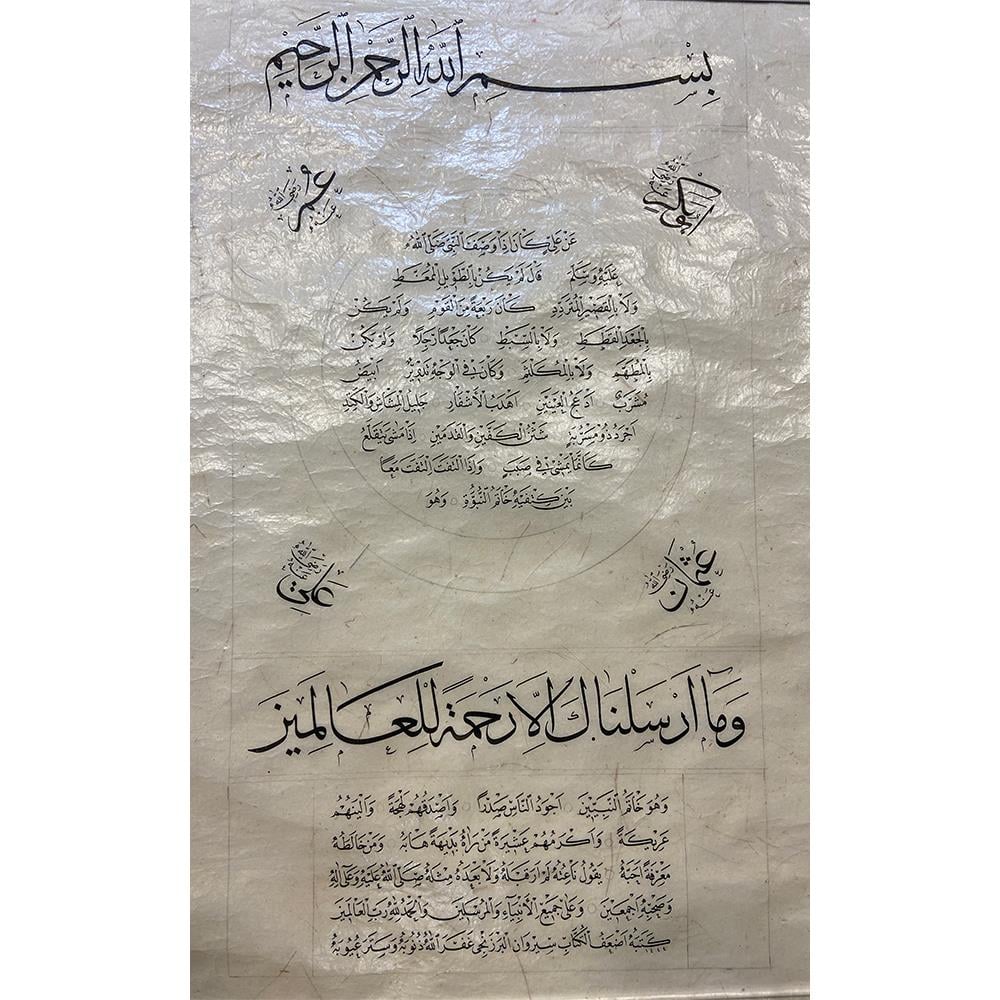 بِسْمِ ٱللَّهِ ٱلرَّحْمٰنِ ٱلرَّحِيْمِ
ابوبكر رضي الله عنه
عُمَر رضي الله عنه
عَنْ عَلِيٍّ كَانَ اِذَا وَصَفَ النَّبِيَّ صَلَّى اللّٰهُ
عَلَيْهِ وَسَلَّمَ قَالَ لَمْ يَكُنْ بِالطَّوِيلِ الْمُمَغَّطِ
وَلَا بِالْقَصِيْرِ الْمُتَرَدِّدِ كَانَ رَبْعَةً مِنَ الْقَوْمِ وَلَمْ يَكُنْ
بِالْجَعْدِ الْقَطَطِ وَلَا بِالسَّبِطِ كَانَ جَعْدًا رَجِلًا وَلَمْ يَكُنْ
بِالْمُطَهَّمِ وَلَا بِالْمُكَلْثَمِ وَكَانَ فِي الْوَجْهِ تَدْوِيْرٌ اَبْيَضُ
مُشْرَبٌ اَدْعَجُ الْعَيْنَيْنِ اَهْدَبُ الْاَشْفَارِ جَلِيْلُ الْمُشَاشِ وَالْكَتَدِ
اَجْرَدُ ذُوْ مَسْرُبَةٍ شَثْنُ الْكَفَّيْنِ وَالْقَدَمَيْنِ اِذَا مَشٰى يَتَقَلَّعُ
كَاَنَّمَا يَمْشِيْ فِيْ صَبَبٍ وَاِذَا الْتَفَتَ اِلْتَفَتَ مَعًا
بَيْنَ كَتِفَيْهِ خَاتَمُ النُّبُوَّةِ وَهُوَ
عُثْمَان رضي الله عنه
عَلِيّ رضي الله عنه
وَمَا اَرْسَلْنَاكَ اِلَّا رَحْمَةً لِلْعَالَمِيْنَ
وَهُوَ خَاتَمُ النَّبِيِّيْنَ اَجْوَدُ النَّاسِ صَدْرًا وَاَصْدَقُهُمْ لَهْجَةً وَاَلْيَنُهُمْ
عَرِيْكَةً وَاَكْرَمُهُمْ عَشِيْرَةً مَنْ رَاٰهُ بَدِيْهَةً هَابَهُ وَمَنْ خَالَطَهُ
مَعْرِفَةً اَحَبَّهُ يَقُولُ نَاعِتُهُ لَمْ اَرَ قَبْلَهُ وَلَا بَعْدَهُ مِثْلَهُ صَلَّى اللّٰهُ عَلَيْهِ وَعَلٰى اٰلِهِ
وَصَحْبِهِ اَجْمَعِيْنَ وَعَلٰى جَمِيْعِ الْاَنْبِيَاءِ وَالْمُرْسَلِيْنَ وَالْحَمْدُ لِلّٰهِ رَبِّ الْعَالَمِيْنَ
كَتَبَهُ اَضْعَفُ الْكُتَّابِ سيروان البرزنجي غَفَرَ اللّٰهُ ذُنُوْبَهُ وَسَتَرَ عُيُوْبَهُ